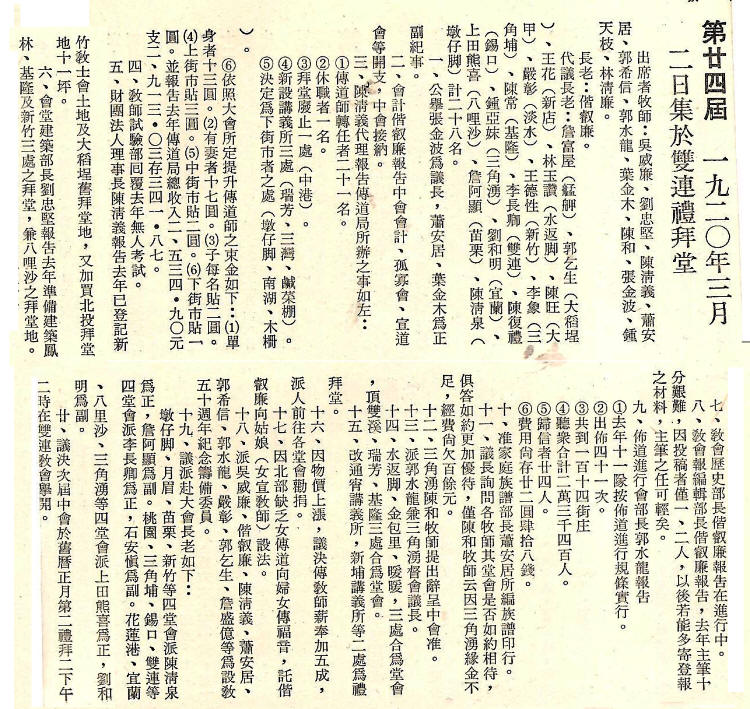 第廿四屆　一九二〇年三月
二日集於雙連禮拜堂
出席者牧師：吳威廉、劉忠堅、陳淸義、蕭安
居、郭希信、郭水龍、葉金木、陳和、張金波、鍾
天枝、林淸廉。
長老：偕叡廉。
代議長老：詹富屋（艋舺）、郭乞生（大稻埕
）、王花（新店）、林玉讚（水返脚）、陳旺（大
甲）、嚴彰（淡水）、王德性（新竹）、李象（三
角埔）、陳常（基隆）、李長卿（雙連）、陳復禮
（錫口）、鍾亞妹（三角湧）、劉和明（宜蘭）、
上田熊喜（八哩沙）、詹阿顯（苗栗）、陳淸泉（
墩仔脚）計二十八名。
一、公擧張金波爲議長，蕭安居、葉金木爲正
副紀事。
二、會計偕叡廉報告中會會計、孤寡會、宣道
會等開支，中會接納。
三、陳淸義代理報告傳道局所辦之事如左：
①傳道師轉任者二十一名。
②休職者一名。
③拜堂廢止一處（中港）。
④新設講義所三處（瑞芳、三灣、鹹菜棚）。
⑤決定爲下街市者之處（墩仔脚、南湖、木柵
）。
⑥依照大會所定提升傳道師之束金如下：⑴單
身者十三圓。⑵有妻者十七圓。⑶子每名貼二圓。
⑷上街市貼三圓。⑸中街市貼二圓。⑹下街市貼一
圓。並報告去年傳道局總收入二、五三四・九〇元
支二、九一三・〇三存三四一・八七。
四、敎師試驗部回覆去年無人考試。
五、財團法人理事長陳淸義報告去年已登記新
竹敎士會土地及大稻埕舊拜堂地，又加買北投拜堂
地十一坪。
六、會堂建築部長劉忠堅報告去年準備建築鳳
林、基隆及新竹三處之拜堂，兼八哩沙之拜堂地。
七、敎會歷史部長偕叡廉報告在進行中。
八、敎會報編輯部長偕叡廉報告，去年主筆十
分艱難，因投稿者僅一、二人，以後若能多寄登報
之材料，主筆之任可輕矣。
九、佈道進行會部長郭水龍報告
①去年十一隊按佈道進行規條實行。
②出佈四十一次。
③共到一百十四街庄
④聽衆合計二萬三千四百人。
⑤歸信者廿四人。
⑥費用尙存廿二圓肆拾八錢。
十、准家庭族譜部長蕭安居所編族譜印行。
十一、議長詢問各牧師其堂會是否如約相待，
俱答如約更加優待，僅陳和牧師云因三角湧緣金不
足，經費尙欠百餘元。
十二、三角湧陳和牧師提出辭呈中會准。
十三、派郭水龍兼三角湧督會議長。
十四、水返脚、金包里、暖暖，三處合爲堂會
，頂雙溪、瑞芳、基隆三處合爲堂會。
十五、改通宵講義所，新埔講義所等二處爲禮
拜堂。
十六、因物價上漲，議決傳敎師薪奉加五成，
派人前往各堂會勸捐。
十七、因北部缺乏女傳道向婦女傳福音，託偕
叡廉向姑娘（女宣敎師）設法。
十八、派吳威廉、偕叡廉、陳淸義、蕭安居、
郭希信、郭水龍、嚴彰、郭乞生、詹盛億等爲設敎
五十週年紀念籌備委員。
十九、議派赴大會長老如下：
墩仔脚、月眉、苗栗、新竹等四堂會派陳淸泉
爲正，詹阿顯爲副。桃園、三角埔、錫口、雙連等
四堂會派李長卿爲正，石安愼爲副。花蓮港、宜蘭
、八里沙、三角湧等四堂會派上田熊喜爲正，劉和
明爲副。
廿、議決次屆中會於舊曆正月第二禮拜二下午
二時在雙連敎會擧開。